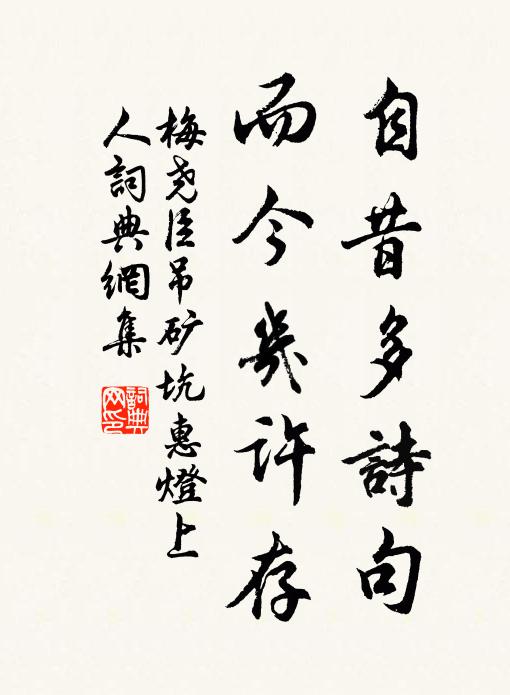 自昔多詩句
而今幾許存
梅尧臣吊矿坑惠燈上
人詞典網集
詞典网印